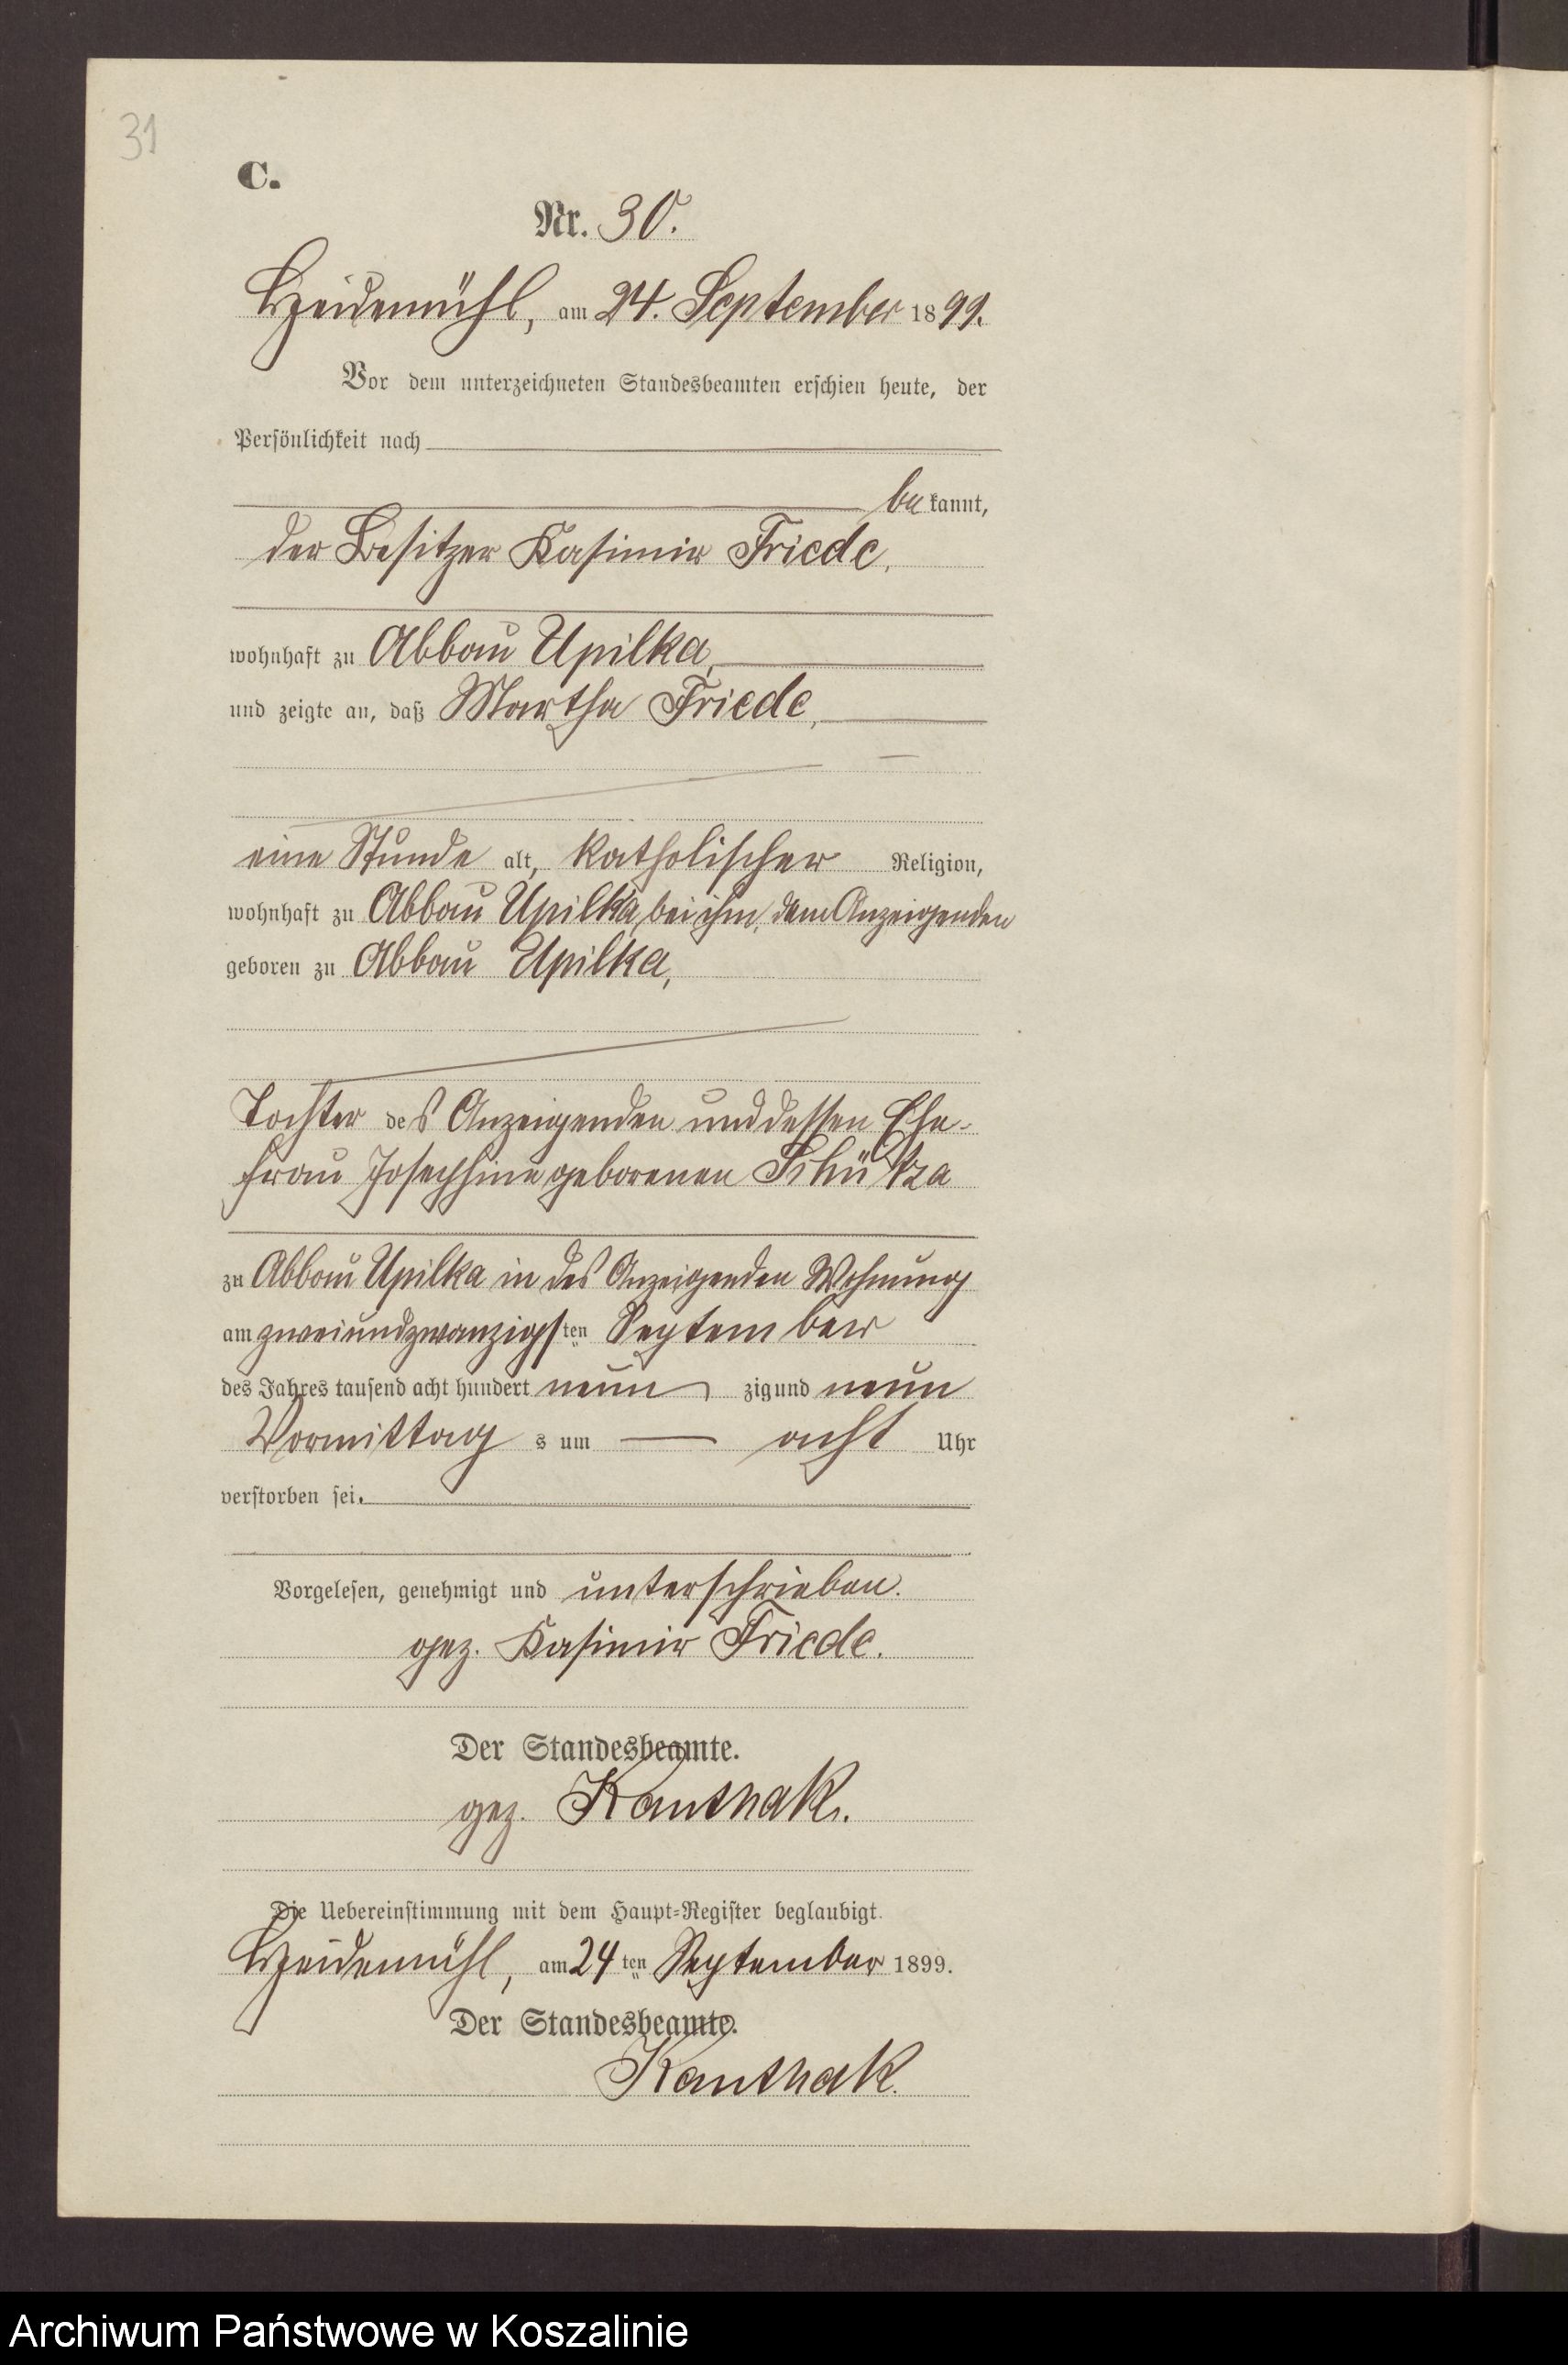 31
C.
Nr. 30.
Heidemühl, am 24. September 1899.
Vor dem unterzeichneten Standesbeamten erschien heute, der
Persönlichkeit nach
bekannt,
der Besitzer Kasimir Friede,
wohnhaft zu Abbau Upilka,
und zeigte an, daß Martha Friede,
eine Stunde alt, katholischer Religion,
wohnhaft zu Abbau Upilka, bei ihm, dem Anzeigenden
geboren zu Abbau Upilka,
Tochter des Anzeigenden und dessen Ehe-
frau Josephine geborenen
zu Abbau Upilka in des Anzeigenden Wohnung
am zweiundzwanzigsten September
des Jahres tausend acht hundert neunzig und neun
Vormittags um acht Uhr
verstorben sei.
Vorgelesen, genehmigt und unterschrieben.
gez. Kasimir Friede.
Der Standesbeamte.
gez. Kanthak.
Die Uebereinstimmung mit dem Haupt-Register beglaubigt.
Heidemühl, am 24ten September 1899.
Der Standesbeamte.
Kanthak.
Archiwum Państwowe w Koszalinie